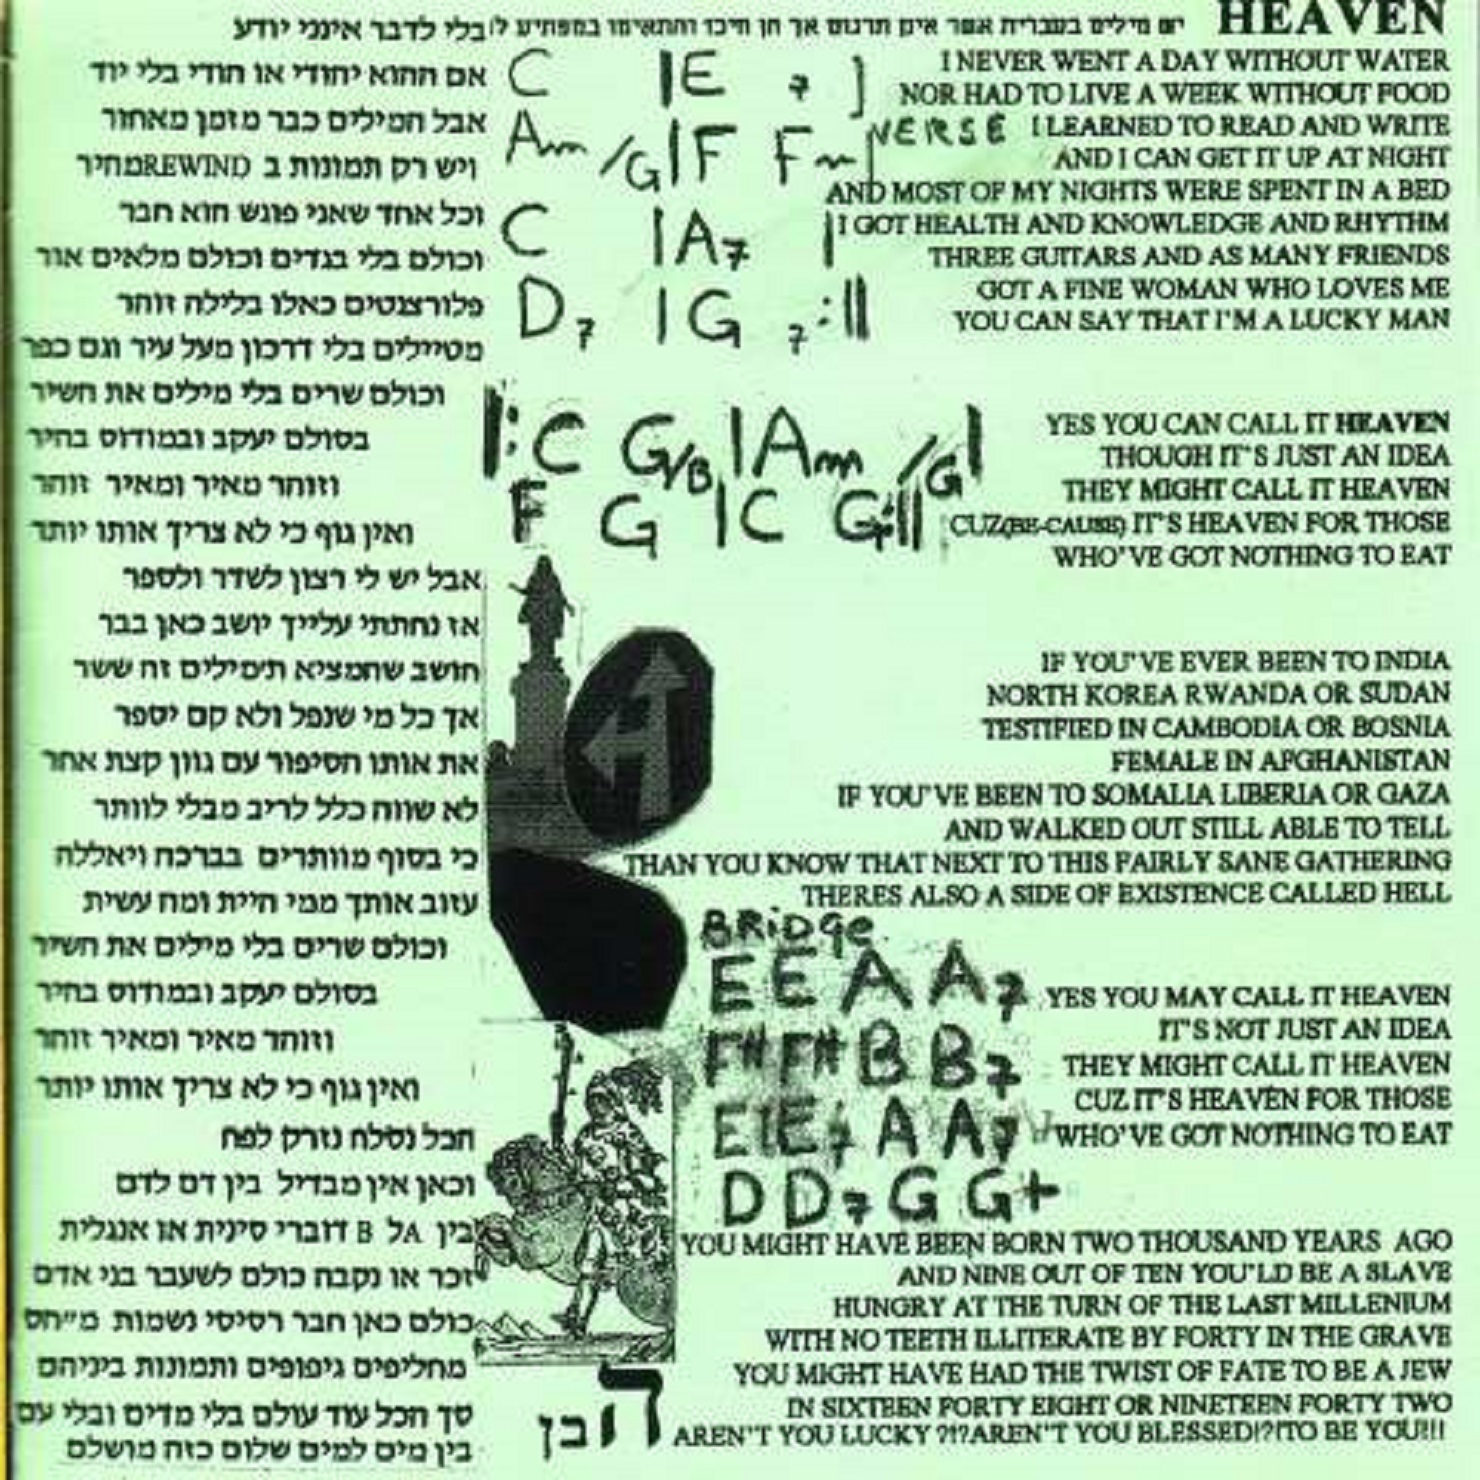 HEAVEN
יש מילים בעברית אשר אינן תרגום אך הן חיבור והתאימו במפתיע לו
I NEVER WENT A DAY WITHOUT WATER
NOR HAD TO LIVE A WEEK WITHOUT FOOD
I LEARNED TO READ AND WRITE
AND I CAN GET IT UP AT NIGHT
AND MOST OF MY NIGHTS WERE SPENT IN A BED
I GOT HEALTH AND KNOWLEDGE AND RHYTHM
THREE GUITARS AND AS MANY FRIENDS
GOT A FINE WOMAN WHO LOVES ME
YOU CAN SAY THAT I'M A LUCKY MAN
YES YOU CAN CALL IT HEAVEN
THOUGH IT'S JUST AN IDEA
THEY MIGHT CALL IT HEAVEN
CUZ(BE-CAUSE) IT'S HEAVEN FOR THOSE
WHO'VE GOT NOTHING TO EAT
IF YOU'VE EVER BEEN TO INDIA
NORTH KOREA RWANDA OR SUDAN
TESTIFIED IN CAMBODIA OR BOSNIA
FEMALE IN AFGHANISTAN
IF YOU'VE BEEN TO SOMALIA LIBERIA OR GAZA
AND WALKED OUT STILL ABLE TO TELL
THAN YOU KNOW THAT NEXT TO THIS FAIRLY SANE GATHERING
THERES ALSO A SIDE OF EXISTENCE CALLED HELL
YES YOU MAY CALL IT HEAVEN
IT'S NOT JUST AN IDEA
THEY MIGHT CALL IT HEAVEN
CUZ IT'S HEAVEN FOR THOSE
WHO'VE GOT NOTHING TO EAT
YOU MIGHT HAVE BEEN BORN TWO THOUSAND YEARS AGO
AND NINE OUT OF TEN YOU'LD BE A SLAVE
HUNGRY AT THE TURN OF THE LAST MILLENIUM
WITH NO TEETH ILLITERATE BY FORTY IN THE GRAVE
YOU MIGHT HAVE HAD THE TWIST OF FATE TO BE A JEW
IN SIXTEEN FORTY EIGHT OR NINETEEN FORTY TWO
AREN'T YOU LUCKY ?!?AREN'T YOU BLESSED!?!TO BE YOU!!!
C |E 7 ]
Am /G|F Fm| VERSE
C |A7 |
D7 |G 7 :||
|: C G/B |Am /G|
F G |C G:||
BRiDge
E E A A7
F# F# B B7
E E7 A A7
D D7 G G+
בלי לדבר אינני יודע
אם ההוא יהודי או הודי בלי יוד
אבל המילים כבר מזמן מאחור
ויש רק תמונות ב REWINDמהיר
וכל אחד שאני פוגש הוא חבר
וכולם בלי בגדים וכולם מלאים אור
פלורצנטים כאלו בלילה זוהר
מטיילים בלי דרכון מעל עיר וגם כפר
וכולם שרים בלי מילים את השיר
בסולם יעקב ובמודוס בהיר
וזוהר מאיר ומאיר זוהר
ואין גוף כי לא צריך אותו יותר
אבל יש לי רצון לשדר ולספר
אז נחתתי עלייך יושב כאן בבר
חושב שהמציא תימילים זה ששר
אך כל מי שנפל ולא קם יספר
את אותו הסיפור עם גוון קצת אחר
לא שווה כלל לריב מבלי לוותר
כי בסוף מוותרים בברכה ויאללה
עזוב אותך ממי היית ומה עשית
וכולם שרים בלי מילים את השיר
בסולם יעקב ובמודוס בהיר
וזוהר מאיר ומאיר זוהר
ואין גוף כי לא צריך אותו יותר
הכל נסלח נזרק לפח
וכאן אין מבדיל בין דם לדם
בין A ל B דוברי סינית או אנגלית
זכר או נקבה כולם לשעבר בני אדם
כולם כאן חבר רסיסי נשמות מ"הס
מחליפים גיפופים ותמונות ביניהם
סך הכל עוד עולם בלי מדים ובלי עם
בין מים למים שלום כזה מושלם
ה ו בן